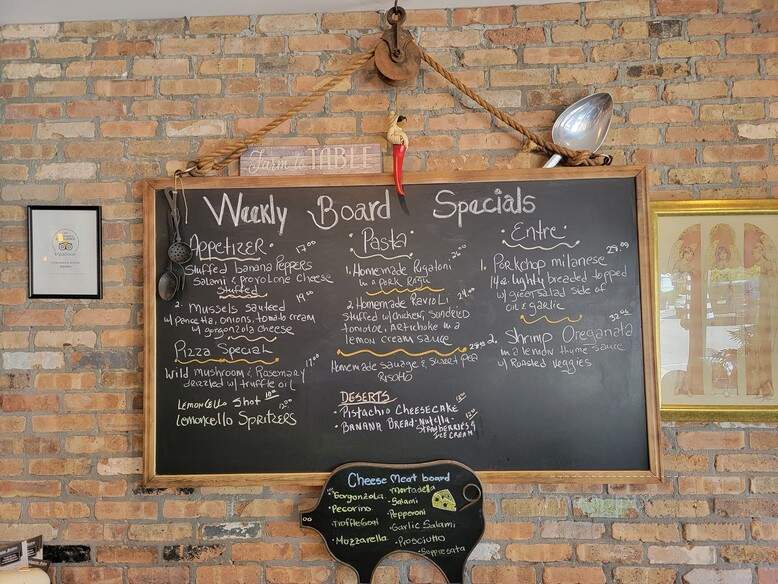 Farm to TABLE
Weekly Board Specials
Appetizer
17.00
Stuffed banana Peppers
Salami & provolone cheese
Stuffed
19.00
2. Mussels sauteed
w/ pancetta, onions, tomato cream
w/ gorgonzola cheese
Pizza Special
17.00
Wild mushroom & Rosemary
drazled w/ truffle oil
Lemoncello Shot 10.00
Lemoncello Spritzers 12.00
Pasta
26.00
1. Homemade Rigatoni
in a pork Ragu
24.00
2. Homemade Ravioli
stuffed w/ chicken, sundried
tomatoe, artichoke in a
lemon cream sauce
28.00
Homemade sausage & sweet pea
Risotto
Deserts
• Pistachio Cheesecake
• Banana Bread - Nutella -
Strawberries &
Ice Cream
12.00
Entre
29.00
1. Porkchop milanese
14oz lightly breaded topped
w/ green salad side of
oil & garlic
32.00
2. Shrimp Oreganata
in a lemon thyme sauce
w/ Roasted veggies
Cheese Meat board
• Gorgonzola
• Pecorino
• Truffle Goat
• Mozzarella
Mortadella
• Salami
• Pepperoni
• Garlic Salami
• Prosciutto
• Soppresata